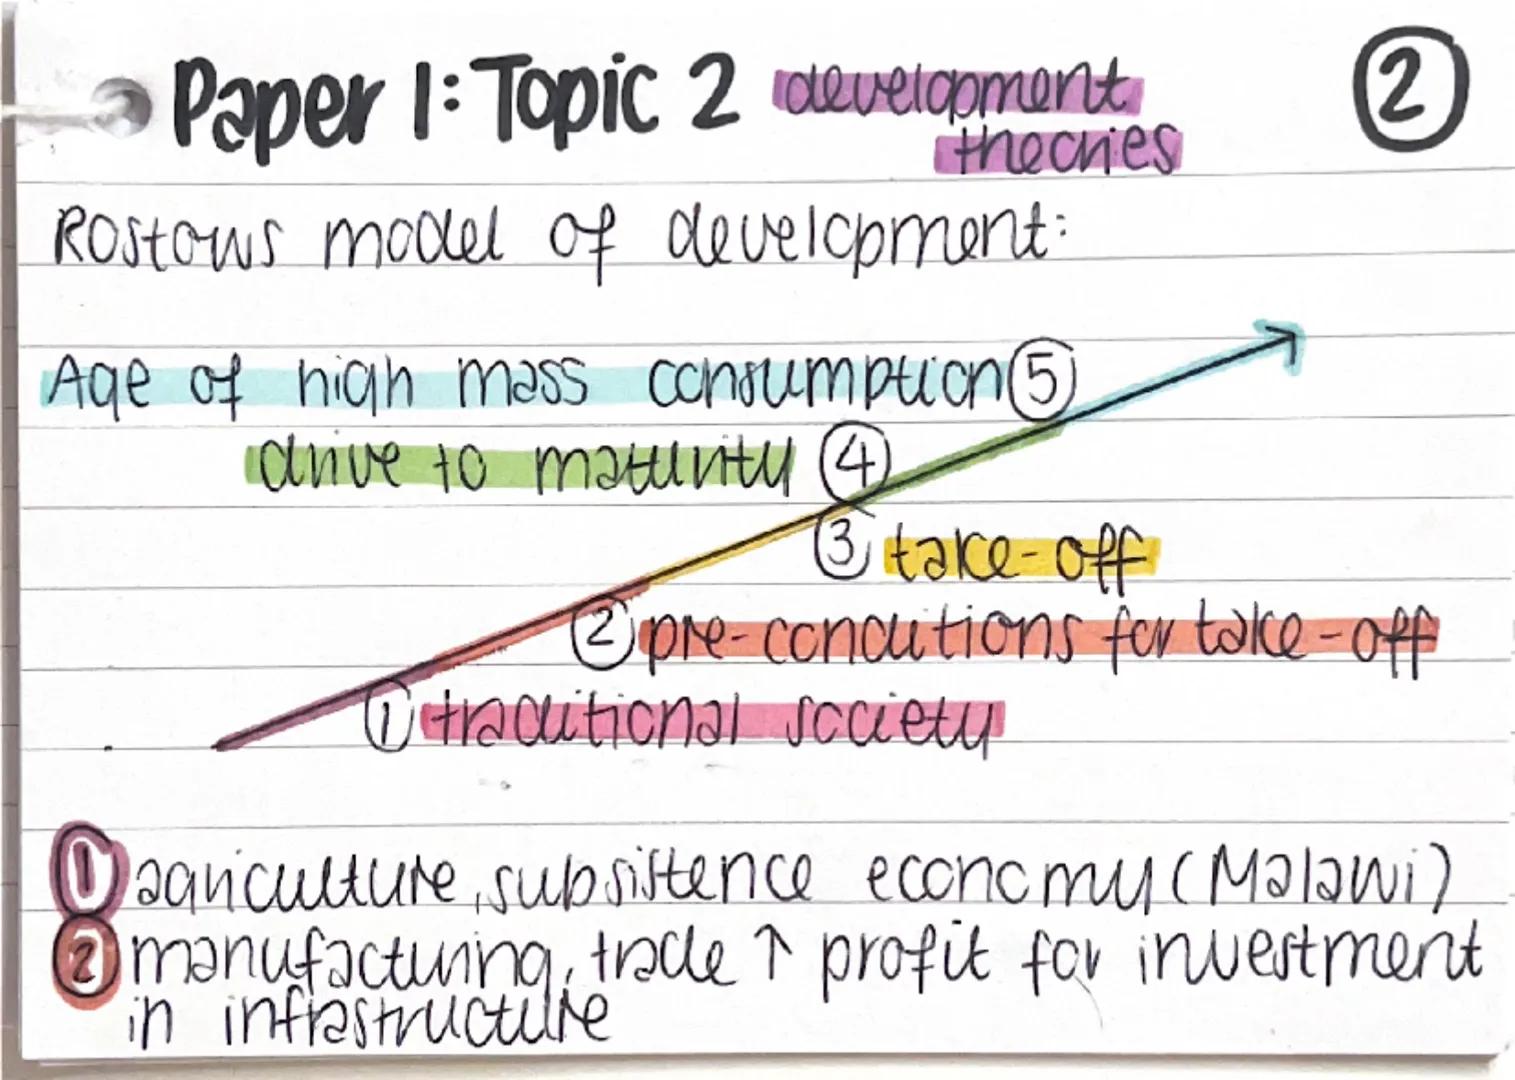 Paper 1: Topic 2 development theories
2
Rostows model of development:
Age of high mass consumption 5
drive to maturity 4
3 take-off
2 pre-conditions for take-off
1 traditional society
1 agriculture, subsistence economy (Malawi)
2 manufacturing, trade ↑ profit for investment
in infrastructure